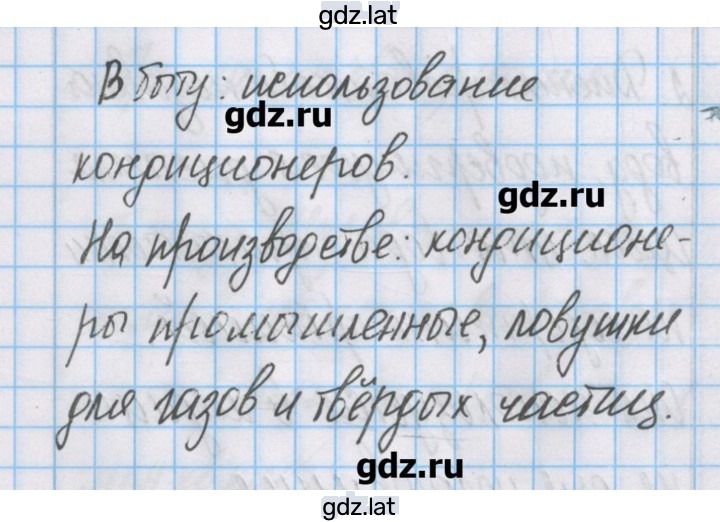 gdz.lat
В быту: использование
gdz.ru
кондиционеров.
gdz.ru
На производстве: кондиционе-
ры промышленные, ловушки
для газов и твёрдых частиц.
gdz.ru
gdz.lat